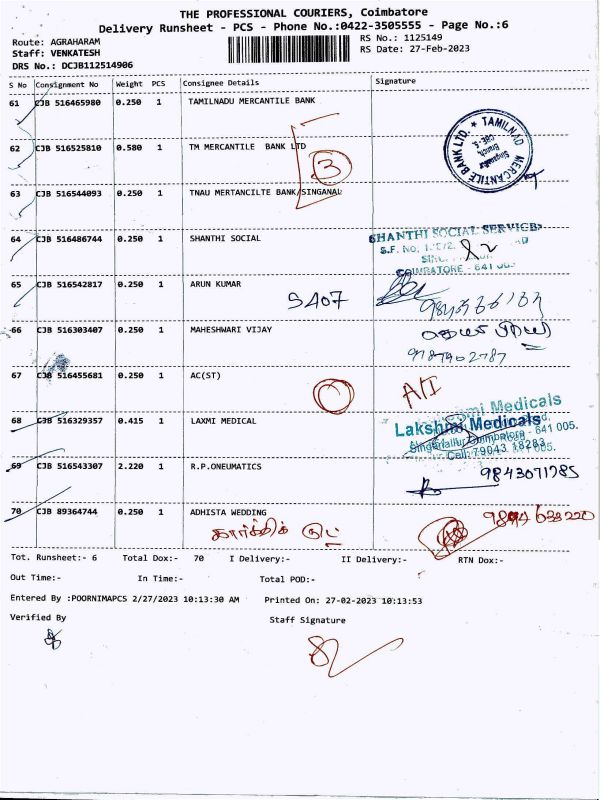 THE PROFESSIONAL COURIERS, Coimbatore
Delivery Runsheet - PCS - Phone No.:0422-3505555 - Page No.:6
Route: AGRAHARAM
Staff: VENKATESH
DRS No.: DCJB112514906
RS No.: 1125149
RS Date: 27-Feb-2023
S No Consignment No Weight PCS Consignee Details Signature
61 CJB 516465980 0.250 1 TAMILNADU MERCANTILE BANK
62 CJB 516525810 0.580 1 TM MERCANTILE BANK LTD
3
TAMILNAD MERCANTILE BANK LTD.
63 CJB 516544093 0.250 1 TNAU MERTANCILTE BANK/SINGANAL
64 CJB 516486744 0.250 1 SHANTHI SOCIAL
SHANTHI SOCIAL SERVICE
S.F. No.
COIMBATORE - 641
65 CJB 516542817 0.250 1 ARUN KUMAR
S407
66 CJB 516303407 0.250 1 MAHESHWARI VIJAY
67 CJB 516455681 0.250 1 AC(ST)
A/I
68 CJB 516329357 0.415 1 LAXMI MEDICAL
Lakshmi Medicals
Singanallur, Coimbatore - 641 005.
Cell: 79043 18283
69 CJB 516543307 2.220 1 R.P.ONEUMATICS
9843071785
70 CJB 89364744 0.250 1 ADHISTA WEDDING
கார்த்திக்
Tot. Runsheet:- 6 Total Dox:- 70 I Delivery:- II Delivery:- RTN Dox:-
Out Time:- In Time:- Total POD:-
Entered By :POORNIMAPCS 2/27/2023 10:13:30 AM Printed On: 27-02-2023 10:13:53
Verified By Staff Signature